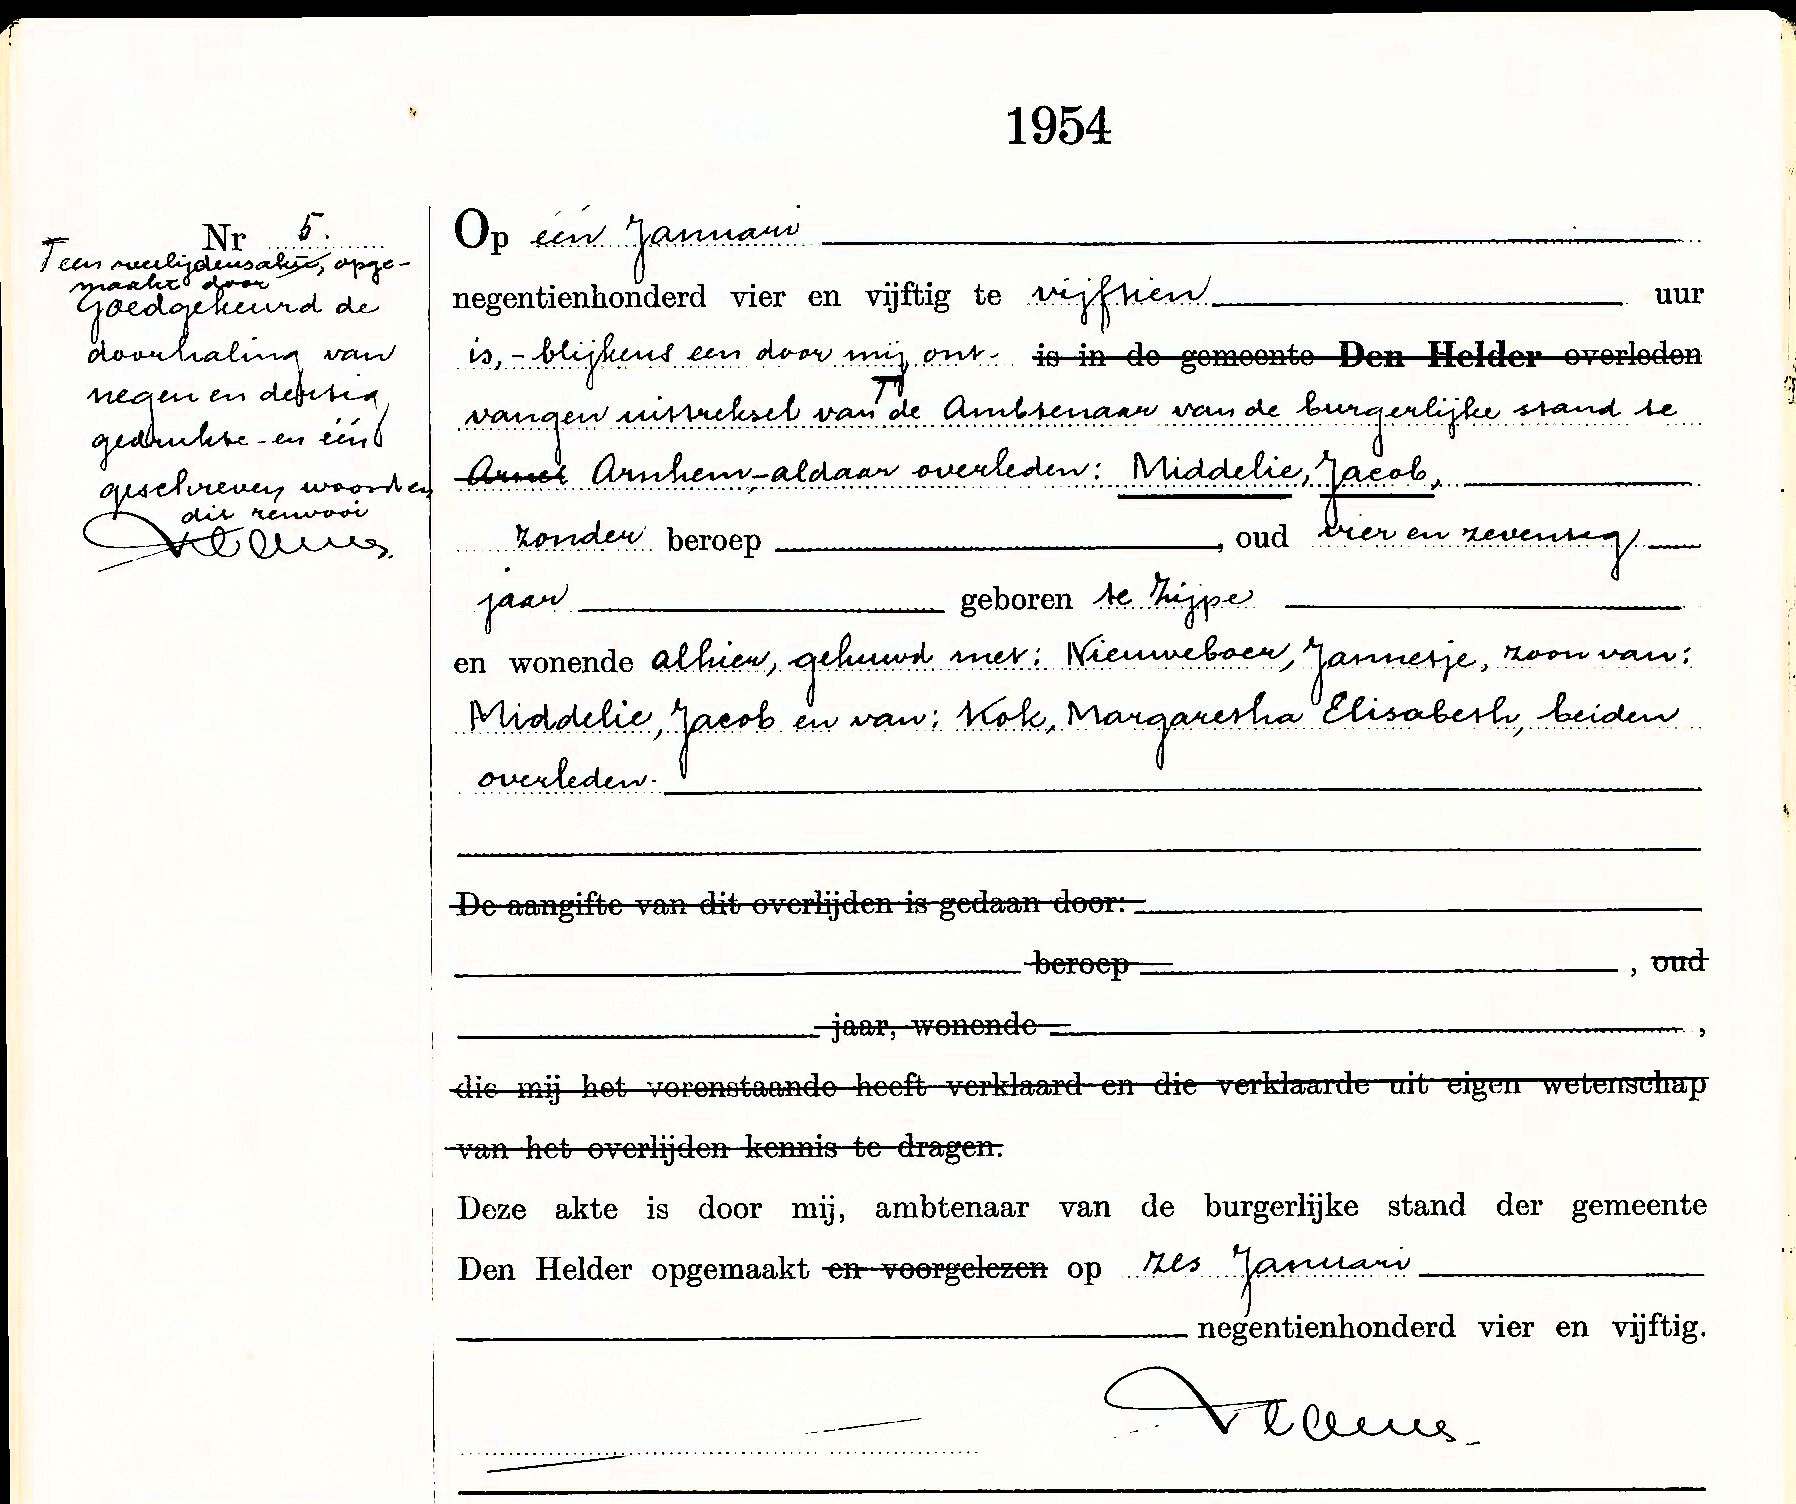 1954
Nr 5.
T een overlijdensakte, opge-
maakt door
Goedgekeurd de
doorhaling van
negen en dertig
gedrukte - en één
geschreven woord en
dit renvooi
Op één Januari
negentienhonderd vier en vijftig te vijftien uur
is, - blijkens een door mij ont- is in de gemeente Den Helder overleden
vangen uittreksel van T de Ambtenaar van de burgerlijke stand te
Arnet Arnhem - aldaar overleden: Middelie, Jacob,
zonder beroep , oud vier en zeventig
jaar geboren te Zijpe
en wonende alhier, gehuwd met: Nieuweboer, Jannetje, zoon van:
Middelie, Jacob en van: Kok, Margaretha Elisabeth, beiden
overleden.
De aangifte van dit overlijden is gedaan door:
beroep , oud
jaar, wonende ,
die mij het vorenstaande heeft verklaard en die verklaarde uit eigen wetenschap
van het overlijden kennis te dragen.
Deze akte is door mij, ambtenaar van de burgerlijke stand der gemeente
Den Helder opgemaakt en voorgelezen op zes Januari
negentienhonderd vier en vijftig.